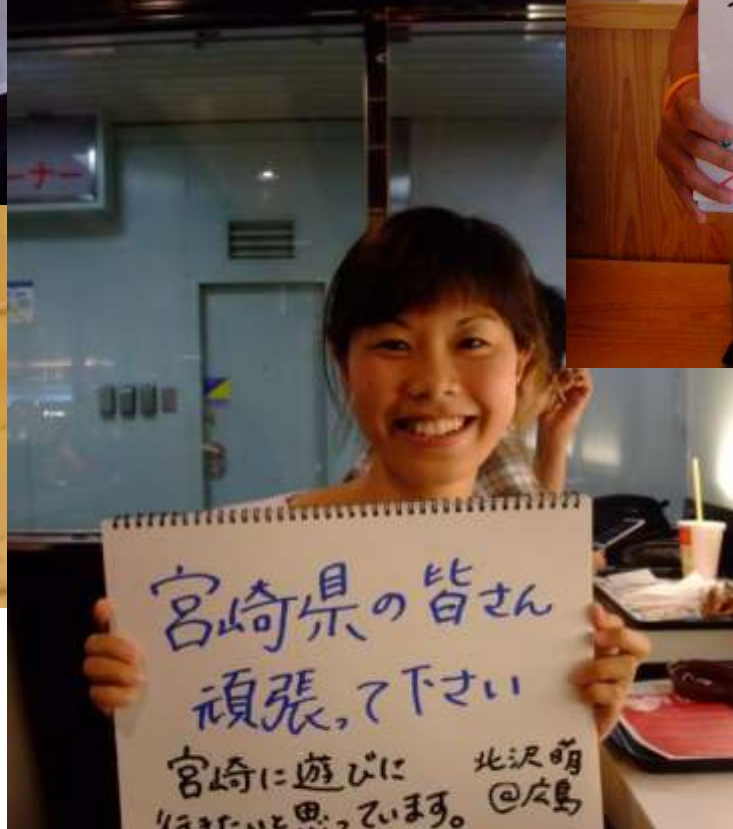 ーナー
宮崎県の皆さん
頑張って下さい
宮崎に遊びに
行きたいと思っています。
北沢萌
@広島